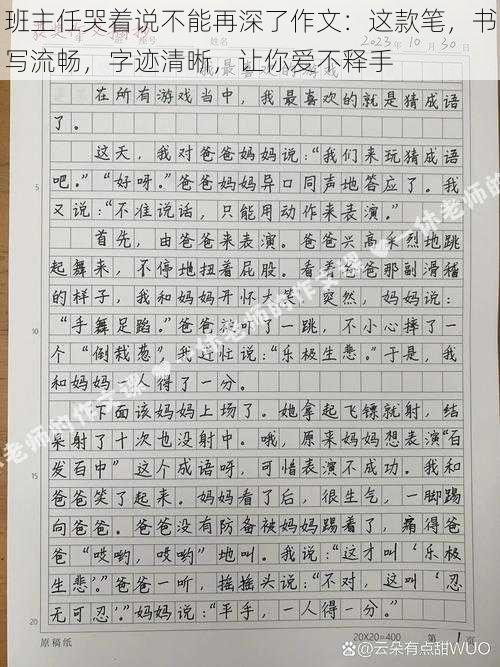 班主任哭着说不能再深了作文：这款笔，书
写流畅，字迹清晰，让你爱不释手
2023年10月30
我最喜欢的游戏
在所有游戏当中，我最喜欢的就是猜成语
了。
这天，我对爸爸妈妈说：“我们来玩猜成语
吧。”“好呀。”爸爸妈妈异口同声地答应了。我
又说：“不准说话，只能用动作来表演。”
首先，由爸爸来表演。爸爸兴高采烈地跳
起舞来，不停地扭着屁股。看着爸爸那副滑稽
的样子，我和妈妈开怀大笑。突然，妈妈说：
“手舞足蹈。”爸爸被吓了一跳，不小心摔了一
个“倒栽葱”，我赶忙说：“乐极生悲。”于是，我
和妈妈一人得了一分。
下面该妈妈上场了。她拿起飞镖就射，结
果射了十次也没射中。哦，原来妈妈想表演“百
发百中”这个成语呀，可惜表演不成功。我和
爸爸笑了起来。妈妈看了后，很生气，一脚踢
向爸爸。爸爸没有防备被妈妈踢着了，痛得爸
爸“哎哟，哎哟”地叫。我说：“这才叫‘乐极
生悲’。”爸爸一听，摇摇头说：“不对，这叫‘忍
无可忍’。”妈妈说：“平手，一人得一分。”
原稿纸
20X20=400
第 1 页
一休老师的作文课
头条 @云朵有点甜WUO